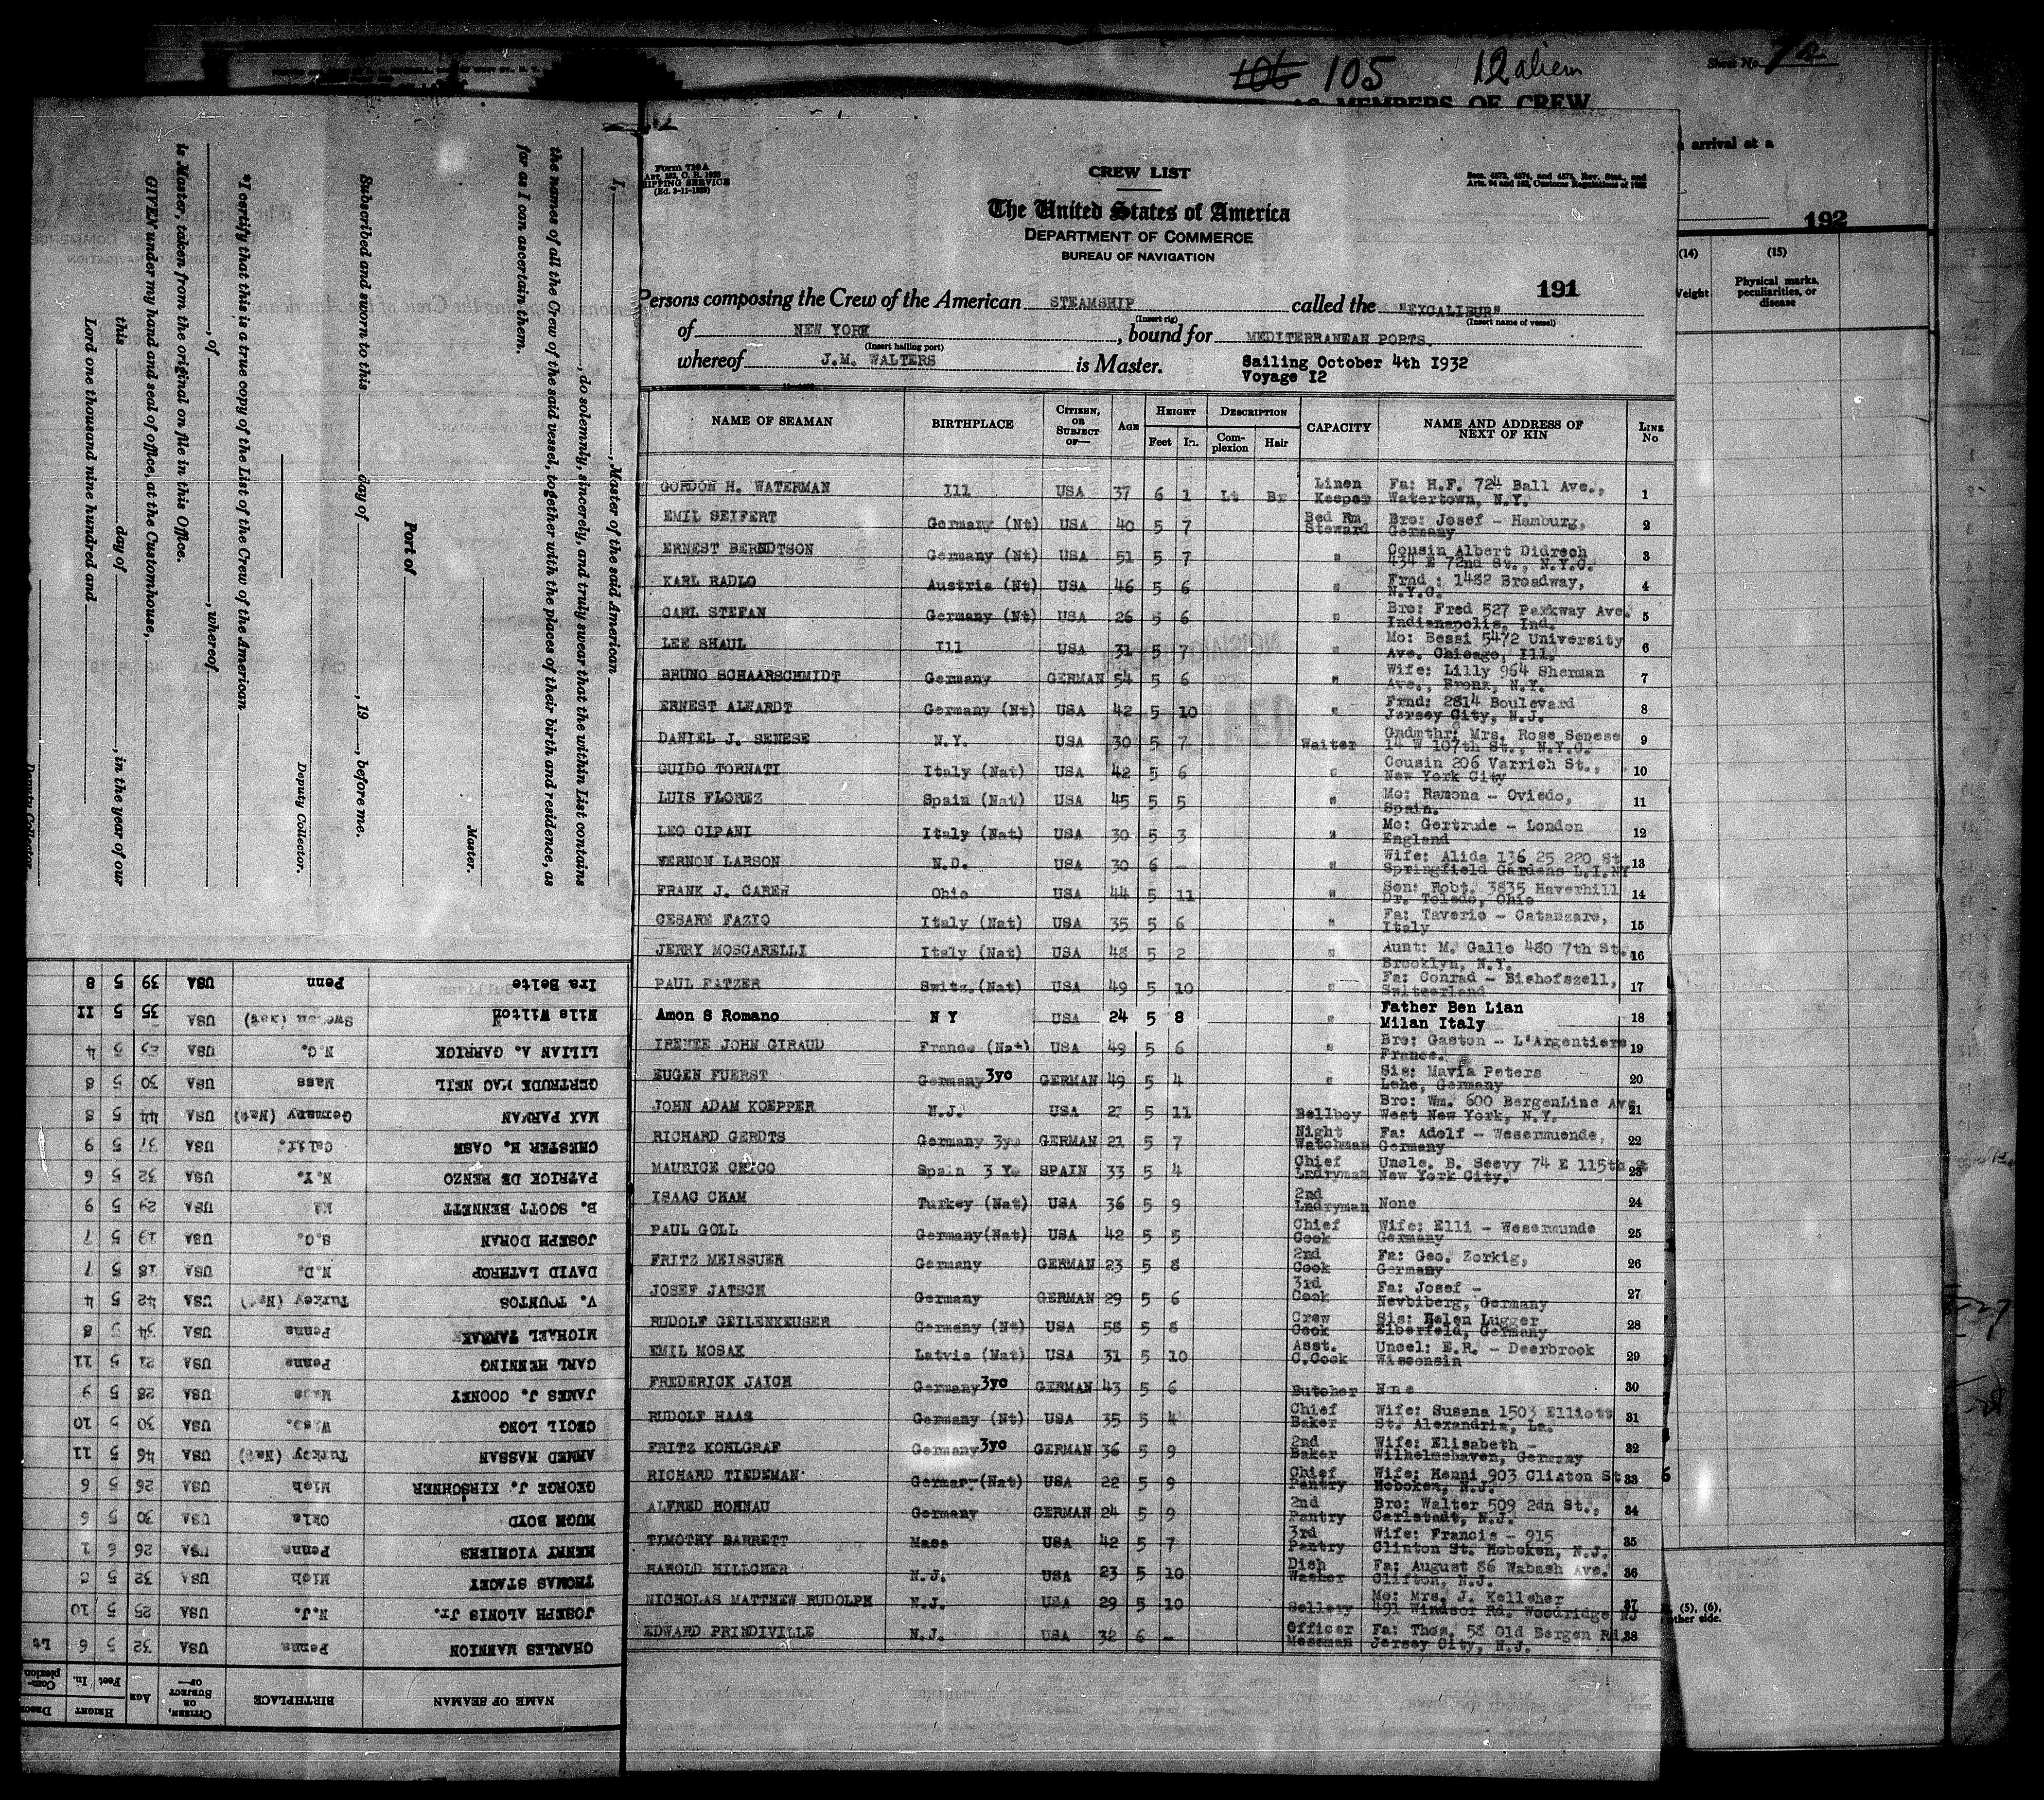 105 12 alien
Sheet No.
AS MEMBERS OF CREW
arrival at a
192
(14) (15)
Weight Physical marks, peculiarities, or disease
Form 710A
Art. 162, C. R. 1923
SHIPPING SERVICE
CREW LIST
Secs. 4573, 4574, and 4575, Rev. Stat., and
The United States of America
DEPARTMENT OF COMMERCE
BUREAU OF NAVIGATION
191
Persons composing the Crew of the American STEAMSHIP called the "EXCALIBUR"
(Insert rig) (Insert name of vessel)
of NEW YORK, bound for MEDITERRANEAN PORTS.
(Insert hailing port)
whereof J.M. WALTERS is Master. Sailing October 4th 1932
Voyage 12
NAME OF SEAMAN BIRTHPLACE CITIZEN, OR SUBJECT OF— AGE HEIGHT Feet In. DESCRIPTION Complexion Hair CAPACITY NAME AND ADDRESS OF NEXT OF KIN LINE No
GORDON H. WATERMAN Ill USA 37 6 1 Lt Br Linen Keeper Fa: H.F. 724 Ball Ave., Watertown, N.Y. 1
EMIL SEIFERT Germany (Nt) USA 40 5 7 Bed Rm Steward Bro: Josef - Hamburg, Germany 2
ERNEST BERNDTSON Germany (Nt) USA 51 5 7 " Cousin Albert Didrech 434 E 72nd St., N.Y.C. 3
KARL RADLO Austria (Nt) USA 46 5 6 " Frnd : 1482 Broadway, N.Y.C. 4
CARL STEFAN Germany (Nt) USA 26 5 6 " Bro: Fred 527 Parkway Ave. Indianapolis, Ind. 5
LEE SHAUL Ill USA 31 5 7 " Mo: Bessi 5472 University Ave. Chicago, Ill. 6
BRUNO SCHAARSCHMIDT Germany GERMAN 54 5 6 " Wife: Lilly 964 Sherman Ave., Bronx, N.Y. 7
ERNEST ALHARDT Germany (Nt) USA 42 5 10 " Frnd: 2814 Boulevard Jersey City, N.J. 8
DANIEL J. SENESE N.Y. USA 30 5 7 Waiter Gndmthr: Mrs. Rose Senese 14 W 107th St., N.Y.C. 9
GUIDO TORNATI Italy (Nat) USA 42 5 6 " Cousin 206 Varrich St., New York City 10
LUIS FLOREZ Spain (Nat) USA 45 5 5 " Mo: Ramona - Oviedo, Spain. 11
LEO CIPANI Italy (Nat) USA 30 5 3 " Mo: Gertrude - London England 12
VERNON LARSON N.D. USA 30 6 - " Wife: Alida 136 25 220 St Springfield Gardens L.I.NY 13
FRANK J. CARER Ohio USA 44 5 11 " Son: Robt. 3835 Haverhill Dr. Toledo, Ohio 14
CESARE FAZIO Italy (Nat) USA 35 5 6 " Fa: Taverio - Catanzare, Italy 15
JERRY MOSCARELLI Italy (Nat) USA 48 5 2 " Aunt: M. Gallo 480 7th St. Brooklyn, N.Y. 16
PAUL FATZER Switz.(Nat) USA 49 5 10 " Fa: Conrad - Bishofszell, Switzerland 17
Amon S Romano N Y USA 24 5 8 " Father Ben Lian Milan Italy 18
IRENEE JOHN GIRAUD France (Nat) USA 49 5 6 Bro: Gaston - L'Argentiere France. 19
EUGEN FUERST Germany 3yo GERMAN 49 5 4 " Sis: Mavia Peters Lehe, Germany 20
JOHN ADAM KOEPPER N.J. USA 27 5 11 Bellboy Bro: Wm. 600 BergenLine Ave West New York, N.Y. 21
RICHARD GERDTS Germany 3yo GERMAN 21 5 7 Night Watchman Fa: Adolf - Wesermuende, Germany 22
MAURICE CRICO Spain 3 Y SPAIN 33 5 4 Chief Lndryman Uncle. B. Seevy 74 E 115th St New York City. 23
ISAAC CHAM Turkey (Nat) USA 36 5 9 2nd Lndryman None 24
PAUL GOLL Germany(Nat) USA 42 5 5 Chief Cook Wife: Elli - Wesermunde Germany 25
FRITZ MEISSUER Germany GERMAN 23 5 8 2nd Cook Fa: Geo. Zorkig, Germany 26
JOSEF JATSCH Germany GERMAN 29 5 6 3rd Cook Fa: Josef - Nevbiberg, Germany 27
RUDOLF GEILENKEUSER Germany (Nt) USA 58 5 8 Crew Cook Sis: Helen Lugger Elberfeld, Germany 28
EMIL MOSAK Latvia (Nat) USA 31 5 10 Asst. C.Cook Uncel: E.R. - Deerbrook Wisconsin 29
FREDERICK JAICH Germany 3yo GERMAN 43 5 6 Butcher Nne 30
RUDOLF HAAS Germany (Nt) USA 35 5 4 Chief Baker Wife: Susana 1503 Elliott St. Alexandria, La. 31
FRITZ KOHLGRAF Germany 3yo GERMAN 36 5 9 2nd Baker Wife: Elisabeth - Wilhelmshaven, Germany 32
RICHARD TIEDEMAN Germany(Nat) USA 22 5 9 Chief Pantry Wife: Henni 903 Clinton St Hoboken, N.J. 33
ALFRED HORNAU Germany GERMAN 24 5 9 2nd Pantry Bro: Walter 509 2dn St., Carlstadt, N.J. 34
TIMOTHY BARRETT Mass USA 42 5 7 3rd Pantry Wife: Francis - 915 Clinton St. Hoboken, N.J. 35
HAROLD HILLCHER N.J. USA 23 5 10 Dish Washer Fa: August 86 Wabash Ave. Clifton, N.J. 36
NICHOLAS MATTHEW RUDOLPH N.J. USA 29 5 10 Sellery Mo: Mrs. J. Kelleher 491 Windsor Rd. Woodridge NJ 37
EDWARD PRINDIVILLE N.J. USA 32 6 - Officer Messman Fa: Thos. 58 Old Bergen Rd Jersey City, N.J. 38
(5), (6),
other side.
I, , Master of the said American
, do solemnly, sincerely, and truly swear that the within List contains
the names of all the Crew of the said vessel, together with the places of their birth and residence, as
far as I can ascertain them.
Master.
Port of
Subscribed and sworn to this day of , 19 , before me.
Deputy Collector.
*I certify that this is a true copy of the List of the Crew of the American
, of , whereof
is Master, taken from the original on file in this Office.
GIVEN under my hand and seal of office, at the Customhouse,
this day of , in the year of our
Lord one thousand nine hundred and
Deputy Collector.
NAME OF SEAMAN BIRTHPLACE CITIZEN, OR SUBJECT OF— AGE HEIGHT Feet In. Complexion
CHARLES MANNION Penna USA 32 5 6 Lt
JOSEPH ALONIS Jr. N.J. USA 25 5 10
THOMAS STACEY Mich USA 32 5
HENRY VIGNIERS Penna USA 26 6 1
HUGH BOYD Okla USA 30 5 6
GEORGE J. KIRSCHNER Mich USA 26 5 6
AHMED HASSAN Turkey (Nat) USA 46 5 11
CECIL LONG Wass. USA 30 5 10
JAMES J. COONEY Mass USA 28 5 9
CARL HENNING Penna USA 21 5 11
MICHAEL TARNAK Penna USA 34 5 8
V. TOUNTOS Turkey (Nat) USA 42 5 4
DAVID LATHROP N.D. USA 18 5 7
JOSEPH DORAN S.C. USA 19 5 7
B. SCOTT BENNETT Md USA 29 5 9
PATRICK DE RENZO N.Y. USA 32 5 6
CHESTER H. CASE Calif. USA 37 5 9
MAX PARMAN Germany (Nat) USA 44 5 8
GERTRUDE MAC NEIL Mass USA 30 5 8
LILIAN A. GARRICK N.C. USA 5 4
Nils Wilton Sweden (Nat) USA 35 5 11
Ira Belte Penn USA 39 5 8